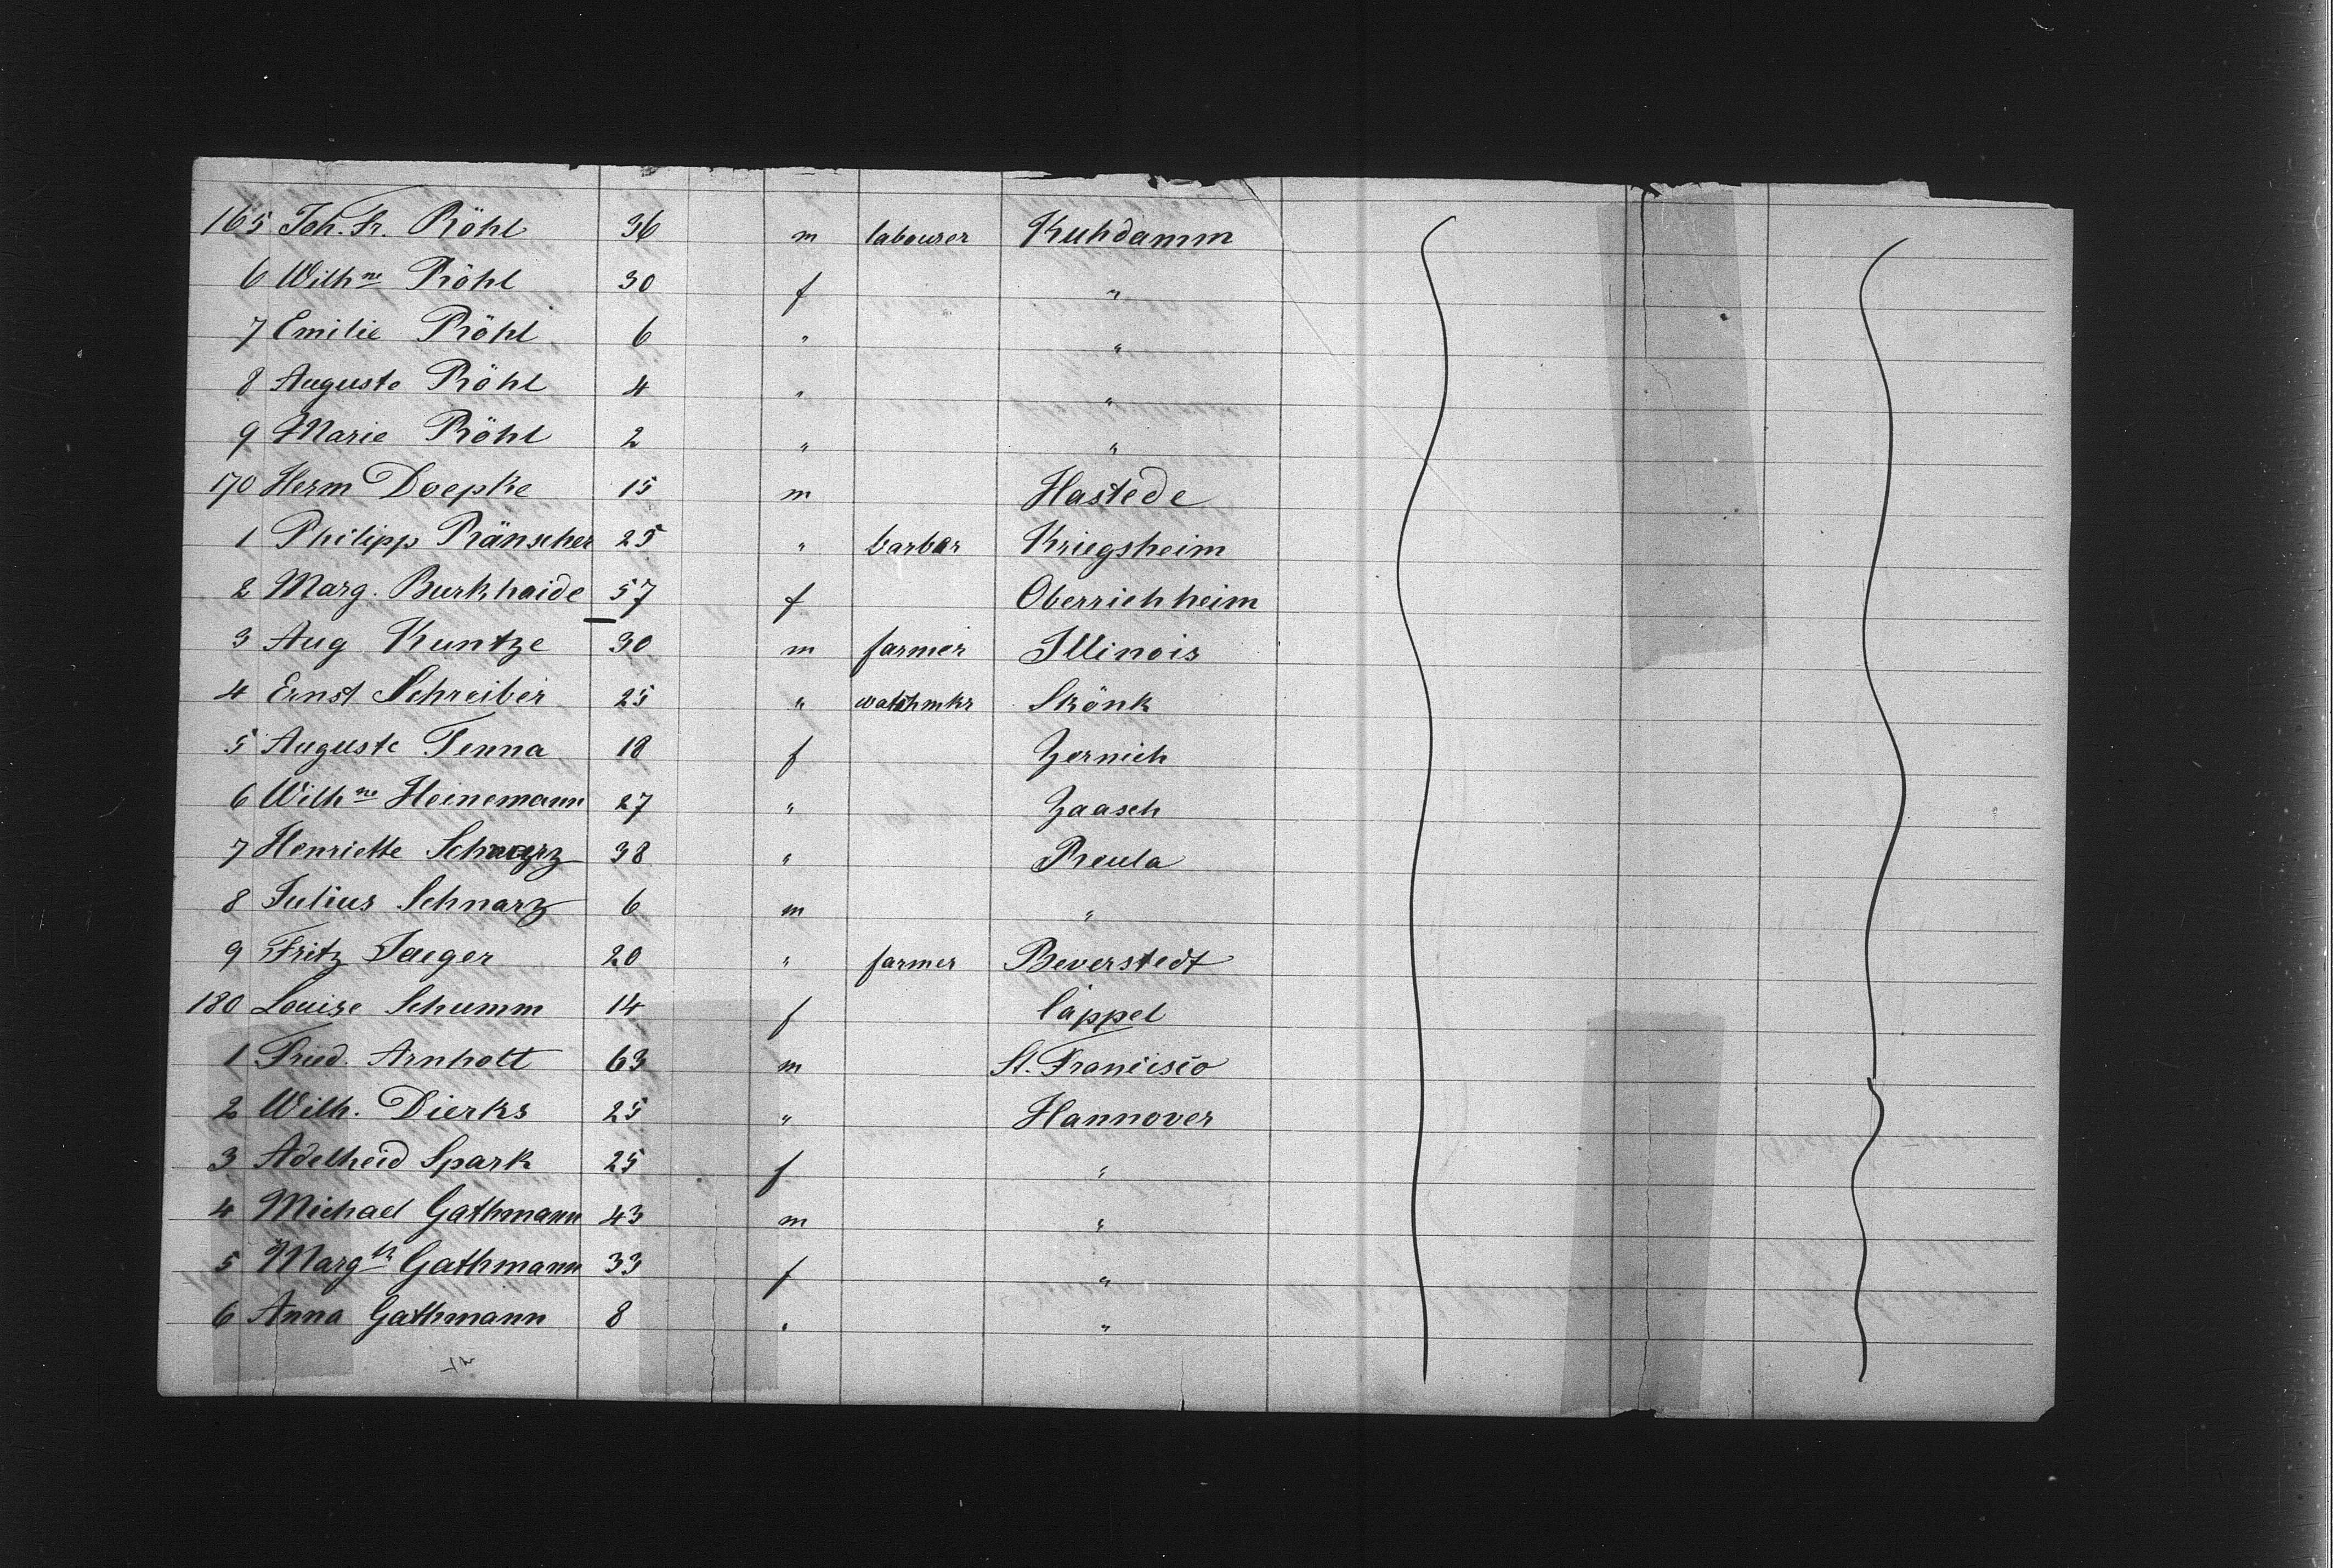 165 Joh. Fr. Röhl 36 m labourer Kuhdamm
6 Wilhne Röhl 30 f "
7 Emilie Röhl 6 " "
8 Auguste Röhl 4 " "
9 Marie Röhl 2 " "
170 Herm Doepke 15 m Hastede
1 Philipp Ränscher 25 " barber Kriegsheim
2 Marg. Burkhaide 57 f Oberrichheim
3 Aug Kuntze 30 m farmer Illinois
4 Ernst Schreiber 25 " watchmkr Skönk
5 Auguste Tenna 18 f Zernich
6 Wilhne Heinemann 27 " Zaasch
7 Henriette Schnarz 38 " Reula
8 Julius Schnarz 6 m "
9 Fritz Jaeger 20 " farmer Beverstedt
180 Louise Schumm 14 f Cappel
1 Fried. Arnholt 63 m St. Francisco
2 Wilh. Dierks 25 " Hannover
3 Adelheid Spark 25 f "
4 Michael Gathmann 43 m "
5 Margth Gathmann 33 f "
6 Anna Gathmann 8 " "